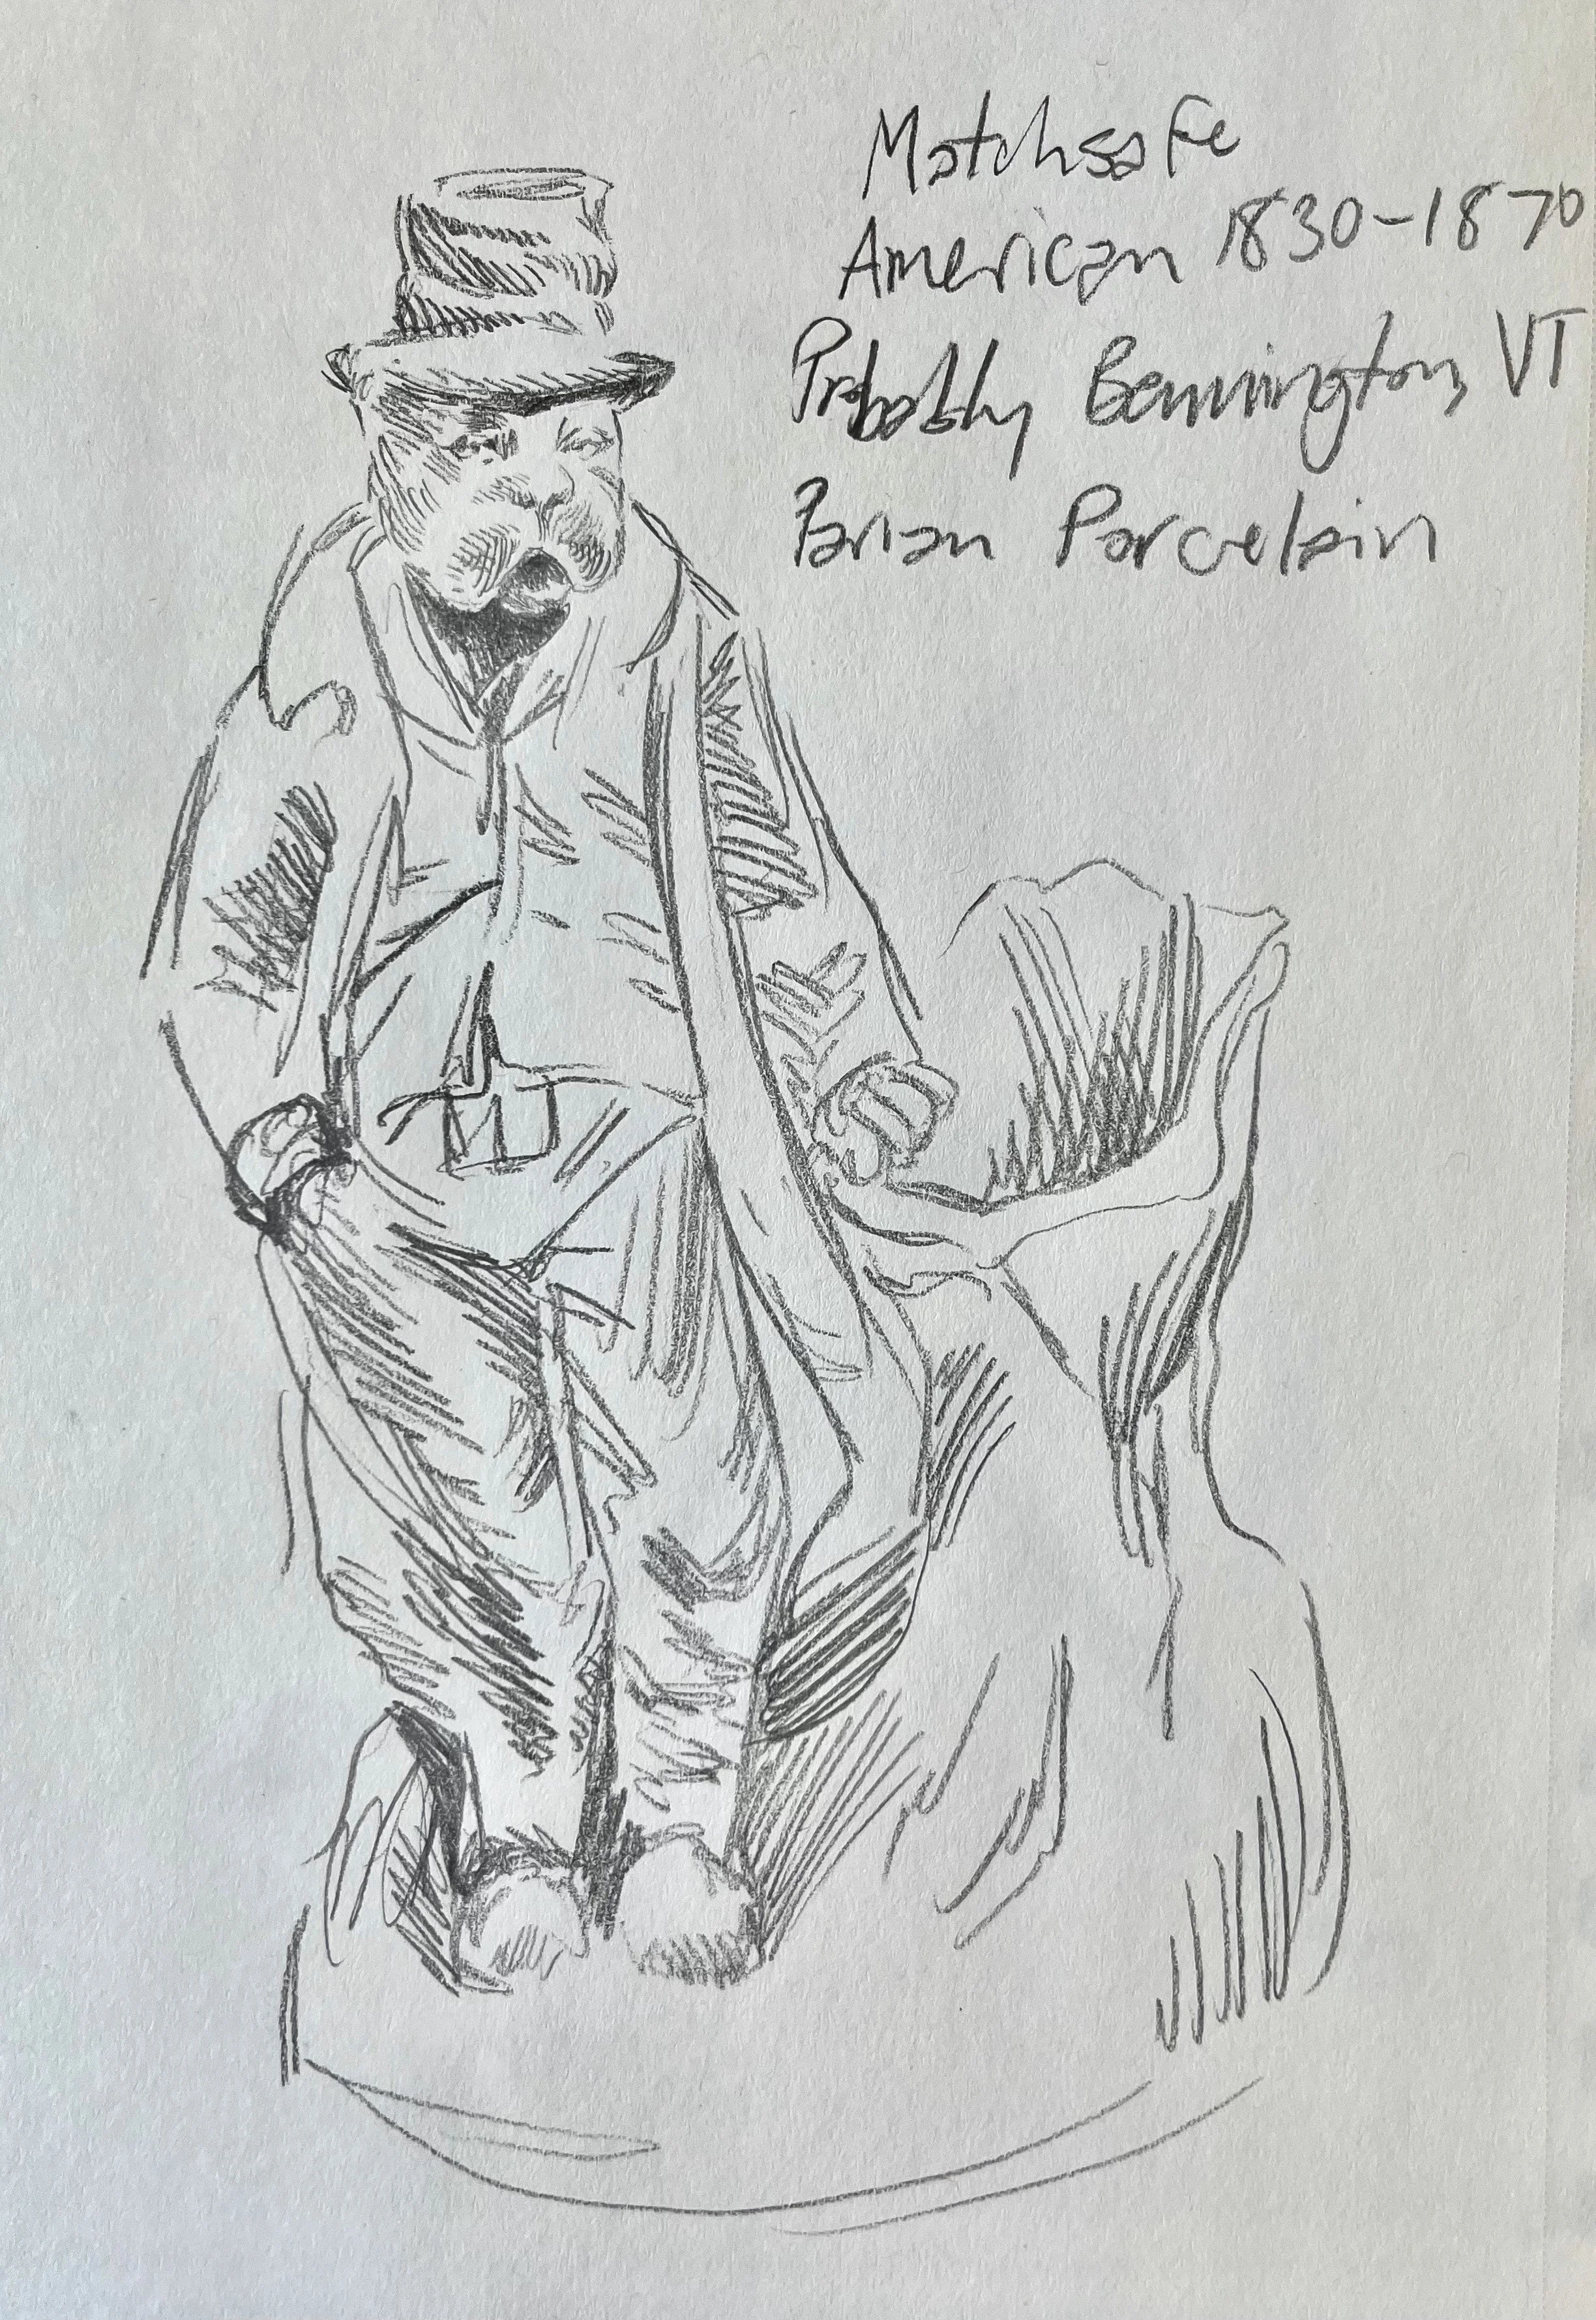 Matchsafe
American 1830-1870
Probably Bennington, VT
Parian Porcelain